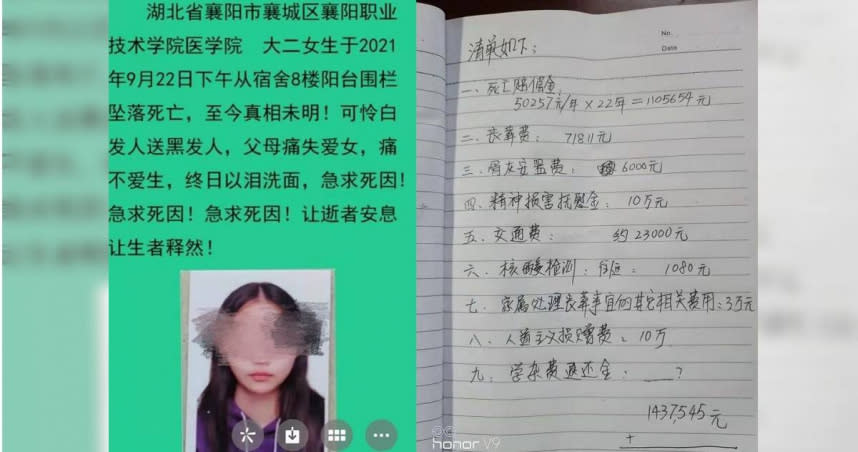 湖北省襄阳市襄城区襄阳职业
技术学院医学院 大二女生于2021
年9月22日下午从宿舍8楼阳台围栏
坠落死亡，至今真相未明！可怜白
发人送黑发人，父母痛失爱女，痛
不爱生，终日以泪洗面，急求死因！
急求死因！急求死因！让逝者安息
让生者释然！
No.
Date
清单如下：
一、死亡赔偿金：
50257元/年×22年=1105654元
二、丧葬费： 71811元
三、骨灰安置费： 6000元
四、精神损害抚慰金： 10万元
五、交通费： 约23000元
六、核酸检测：住宿： 1080元
七、家属处理丧葬事宜的其它相关费用：3万元
八、人道主义损赠费：10万
九、学杂费退还金：___?
1437,545元
+
honor V9